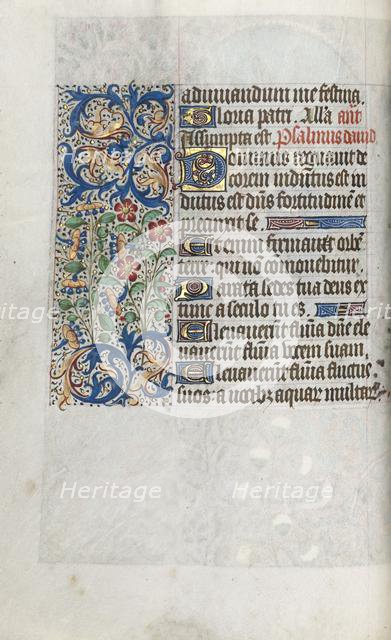 adiuuandum me festina.
Gloria patri. Alla ant
assumpta est. Psalmus dauid
Dominus regnauit de
corem indutus est in
dutus est dns fortitudine et
precinxit se.
Etenim firmauit orbe
terre. qui no comouebitur.
Parata sedes tua deus ex
tunc a seculo tu es.
Eleuauerut flumia dne ele
uauerut flumia vocem suam.
Eleuauerut flumia fluctus
suos. a vocibz aquar multar.
Heritage
Heritage
Heritage
Heritage
Heritage
Heritage